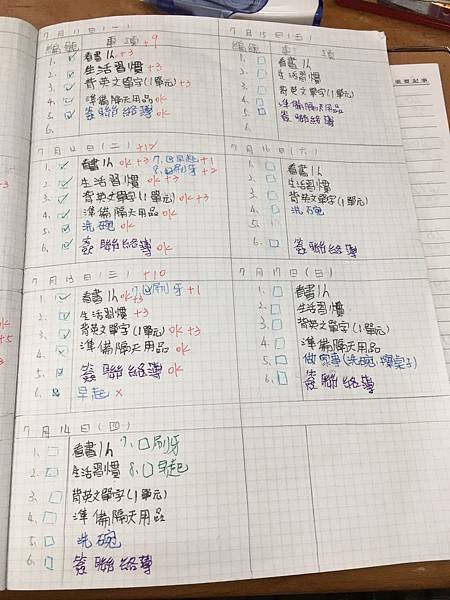 7月11日(一)
編號 事項 +9
1. 看書1h +3
2. 生活習慣 +3
3. 背英文單字(1單元) +3
4. 準備隔天用品 ok
5. 簽聯絡簿 ok
6.
7月12日(二) +12
1. 看書1h ok +3 7. 早起 +1
2. 生活習慣 ok +3 8. 刷牙 +2
3. 背英文單字(1單元) ok +3
4. 準備隔天用品 ok
5. 洗碗 ok
6. 簽聯絡簿 ok
7月13日(三) +10
1. 看書1h ok +3 7. 刷牙 +1
2. 生活習慣 ok +3
3. 背英文單字(1單元) ok +3
4. 準備隔天用品 ok
5. 簽聯絡簿 ok
6. 早起 x
7月14日(四)
1. 看書1h 7. 刷牙
2. 生活習慣 8. 早起
3. 背英文單字(1單元)
4. 準備隔天用品
5. 洗碗
6. 簽聯絡簿
7月15日(五)
編號 事項
1. 看書1h
2. 生活習慣
3. 背英文單字(1單元)
4. 準備隔天用品
5. 簽聯絡簿
6.
7月16日(六)
1. 看書1h
2. 生活習慣
3. 背英文單字(1單元)
4. 洗碗
6. 簽聯絡簿
7月17日(日)
1. 看書1h
2. 生活習慣
3. 背英文單字(1單元)
4. 準備隔天用品
5. 做家事(洗碗、擦桌子)
6. 簽聯絡簿